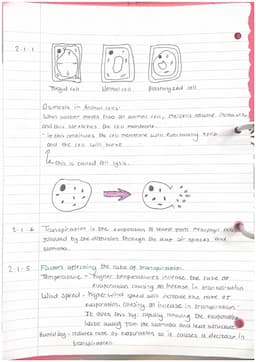 2.1.1
Turgid cell Normal cell Plasmolysed cell
Osmosis in Animal cells:
When water moves from an animal cell, the cells volume increases
and this stretches the cell membrane.
If this continues the cell membrane will eventually
and the cell will burst.
this is called cell lysis.
Transpiration is the evaporation of water from mesophyll
followed by the diffusion through the air spaces and
stomata.
2.1.5 Factors affecting the rate of transpiration:
Temperature - higher temperatures increase the rate of
evaporation causing an increase in transpiration
Wind speed - Higher wind speed will increase the rate of
evaporation, causing an increase in transpiration.
It does this by rapidly removing the evaporated
water away from the stomata and leaf
Humidity - reduces rate of evaporation so it causes a decrease in
transpiration